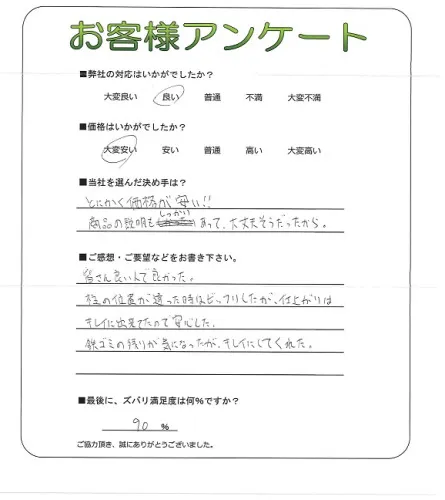 お客様アンケート
■弊社の対応はいかがでしたか?
大変良い 良い 普通 不満 大変不満
■価格はいかがでしたか?
大変安い 安い 普通 高い 大変高い
■当社を選んだ決め手は?
とにかく価格が安い!!
商品の説明もしっかりあって、大丈夫そうだったから。
■ご感想・ご要望などをお書き下さい。
皆さん良い人で良かった。
柱の位置が違った時はビックリしたが、仕上がりは
キレイに出来てたので安心した。
鉄ゴミの残りが気になったが、キレイにしてくれた。
■最後に、ズバリ満足度は何%ですか?
90 %
ご協力頂き、誠にありがとうございました。